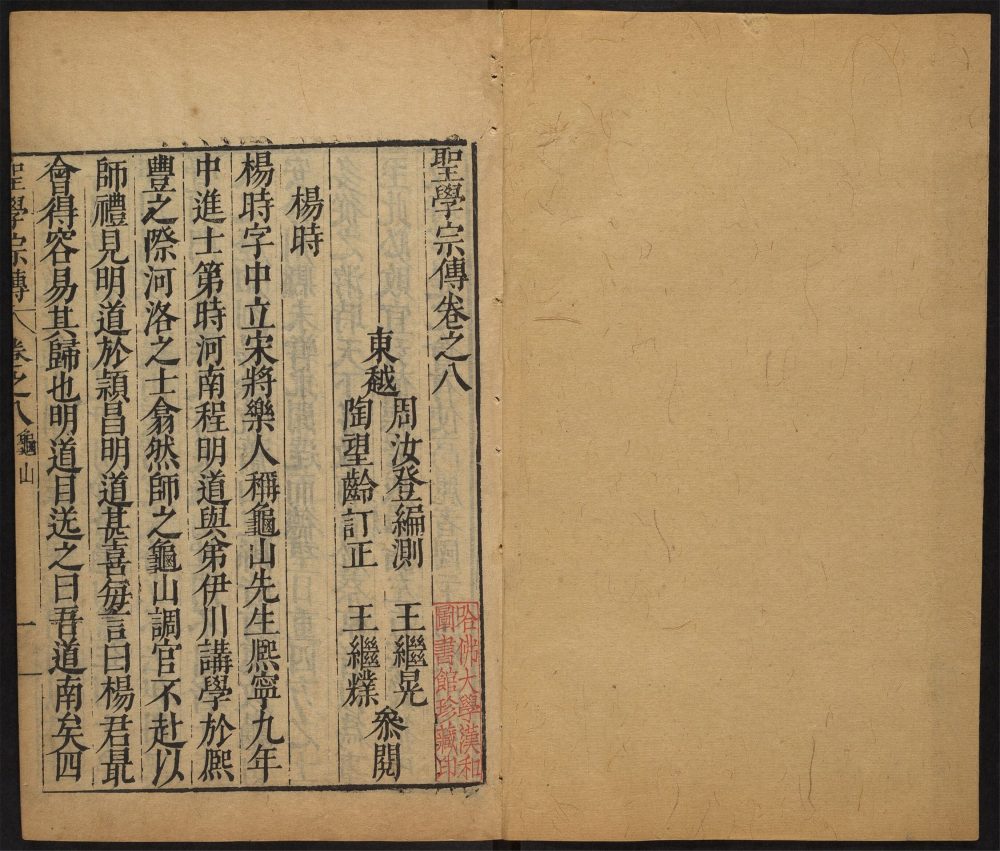 聖學宗傳卷之八
東越
周汝登編測
王繼晃
陶望齡訂正
王繼𤏡
叅閱
楊時
楊時字中立宋將樂人稱龜山先生熈寧九年
中進士第時河南程明道與弟伊川講學於熈
豐之際河洛之士翕然師之龜山調官不赴以
師禮見明道於頴昌明道甚喜每言曰楊君最
會得容易其歸也明道目送之曰吾道南矣四
聖學宗傳
卷之八
龜山
一
哈佛大學漢和
圖書館珍藏印